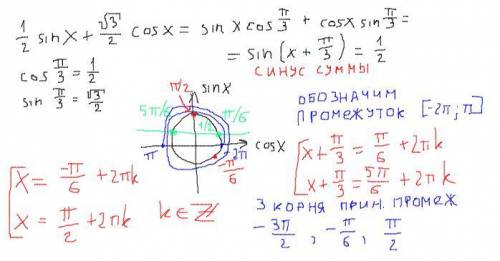 1/2 sin x + √3/2 cos x = sin x cos π/3 + cos x sin π/3 =
= sin (x + π/3) = 1/2
СИНУС СУММЫ
cos π/3 = 1/2
sin π/3 = √3/2
sin x
π/2
5π/6
π/6
1/2
π
-2π
-π/6
cos x
ОБОЗНАЧИМ
ПРОМЕЖУТОК [-2π; π]
[ x + π/3 = π/6 + 2πk
x + π/3 = 5π/6 + 2πk
[ x = -π/6 + 2πk
x = π/2 + 2πk
k ∈ Z
3 КОРНЯ ПРИН. ПРОМЕЖ
-3π/2, -π/6, π/2